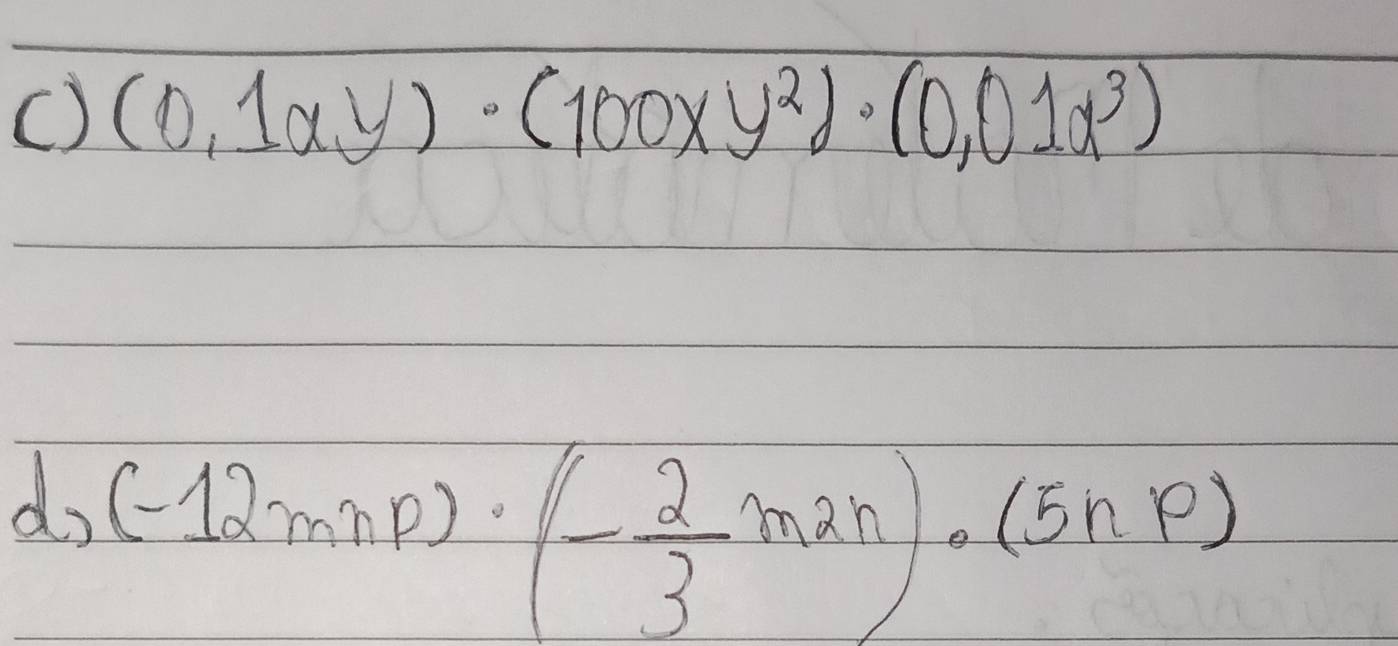 c) (0,1ay) · (100xy²) · (0,01a³)
d) (-12mnp) · (-2/3 m2n) · (5np)